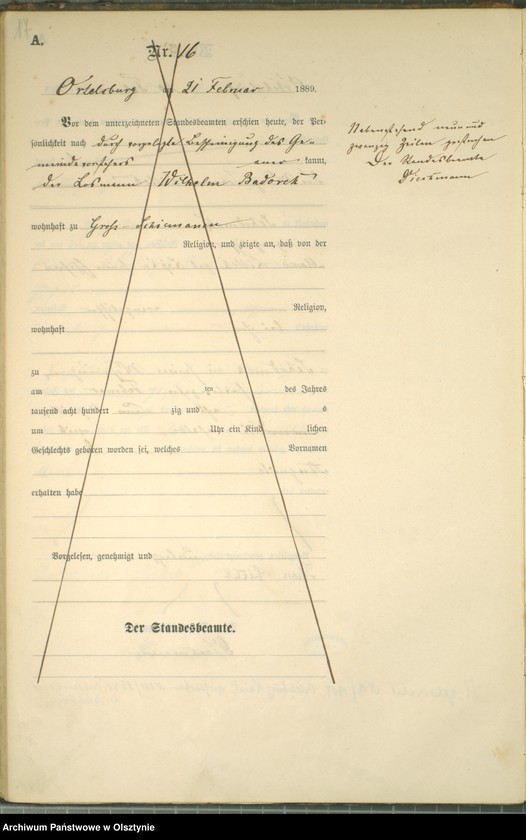 A.
Nr. 46
Ortelsburg am 21 Februar 1889.
Vor dem unterzeichneten Standesbeamten erschien heute, der Per-
sönlichkeit nach durch vorgelegte Bescheinigung des Ge-
meindevorstehers aner- kannt,
der Losmann Wilhelm Badorek
wohnhaft zu Gross Schiemanen
Religion, und zeigte an, daß von der
Religion,
wohnhaft
zu
am ten des Jahres
tausend acht hundert zig und s
um Uhr ein Kind lichen
Geschlechts geboren worden sei, welches Vornamen
erhalten habe
Vorgelesen, genehmigt und
Der Standesbeamte.
Nebenstehend neun und
zwanzig Zeilen gestrichen
Der Standesbeamte
Archiwum Państwowe w Olsztynie